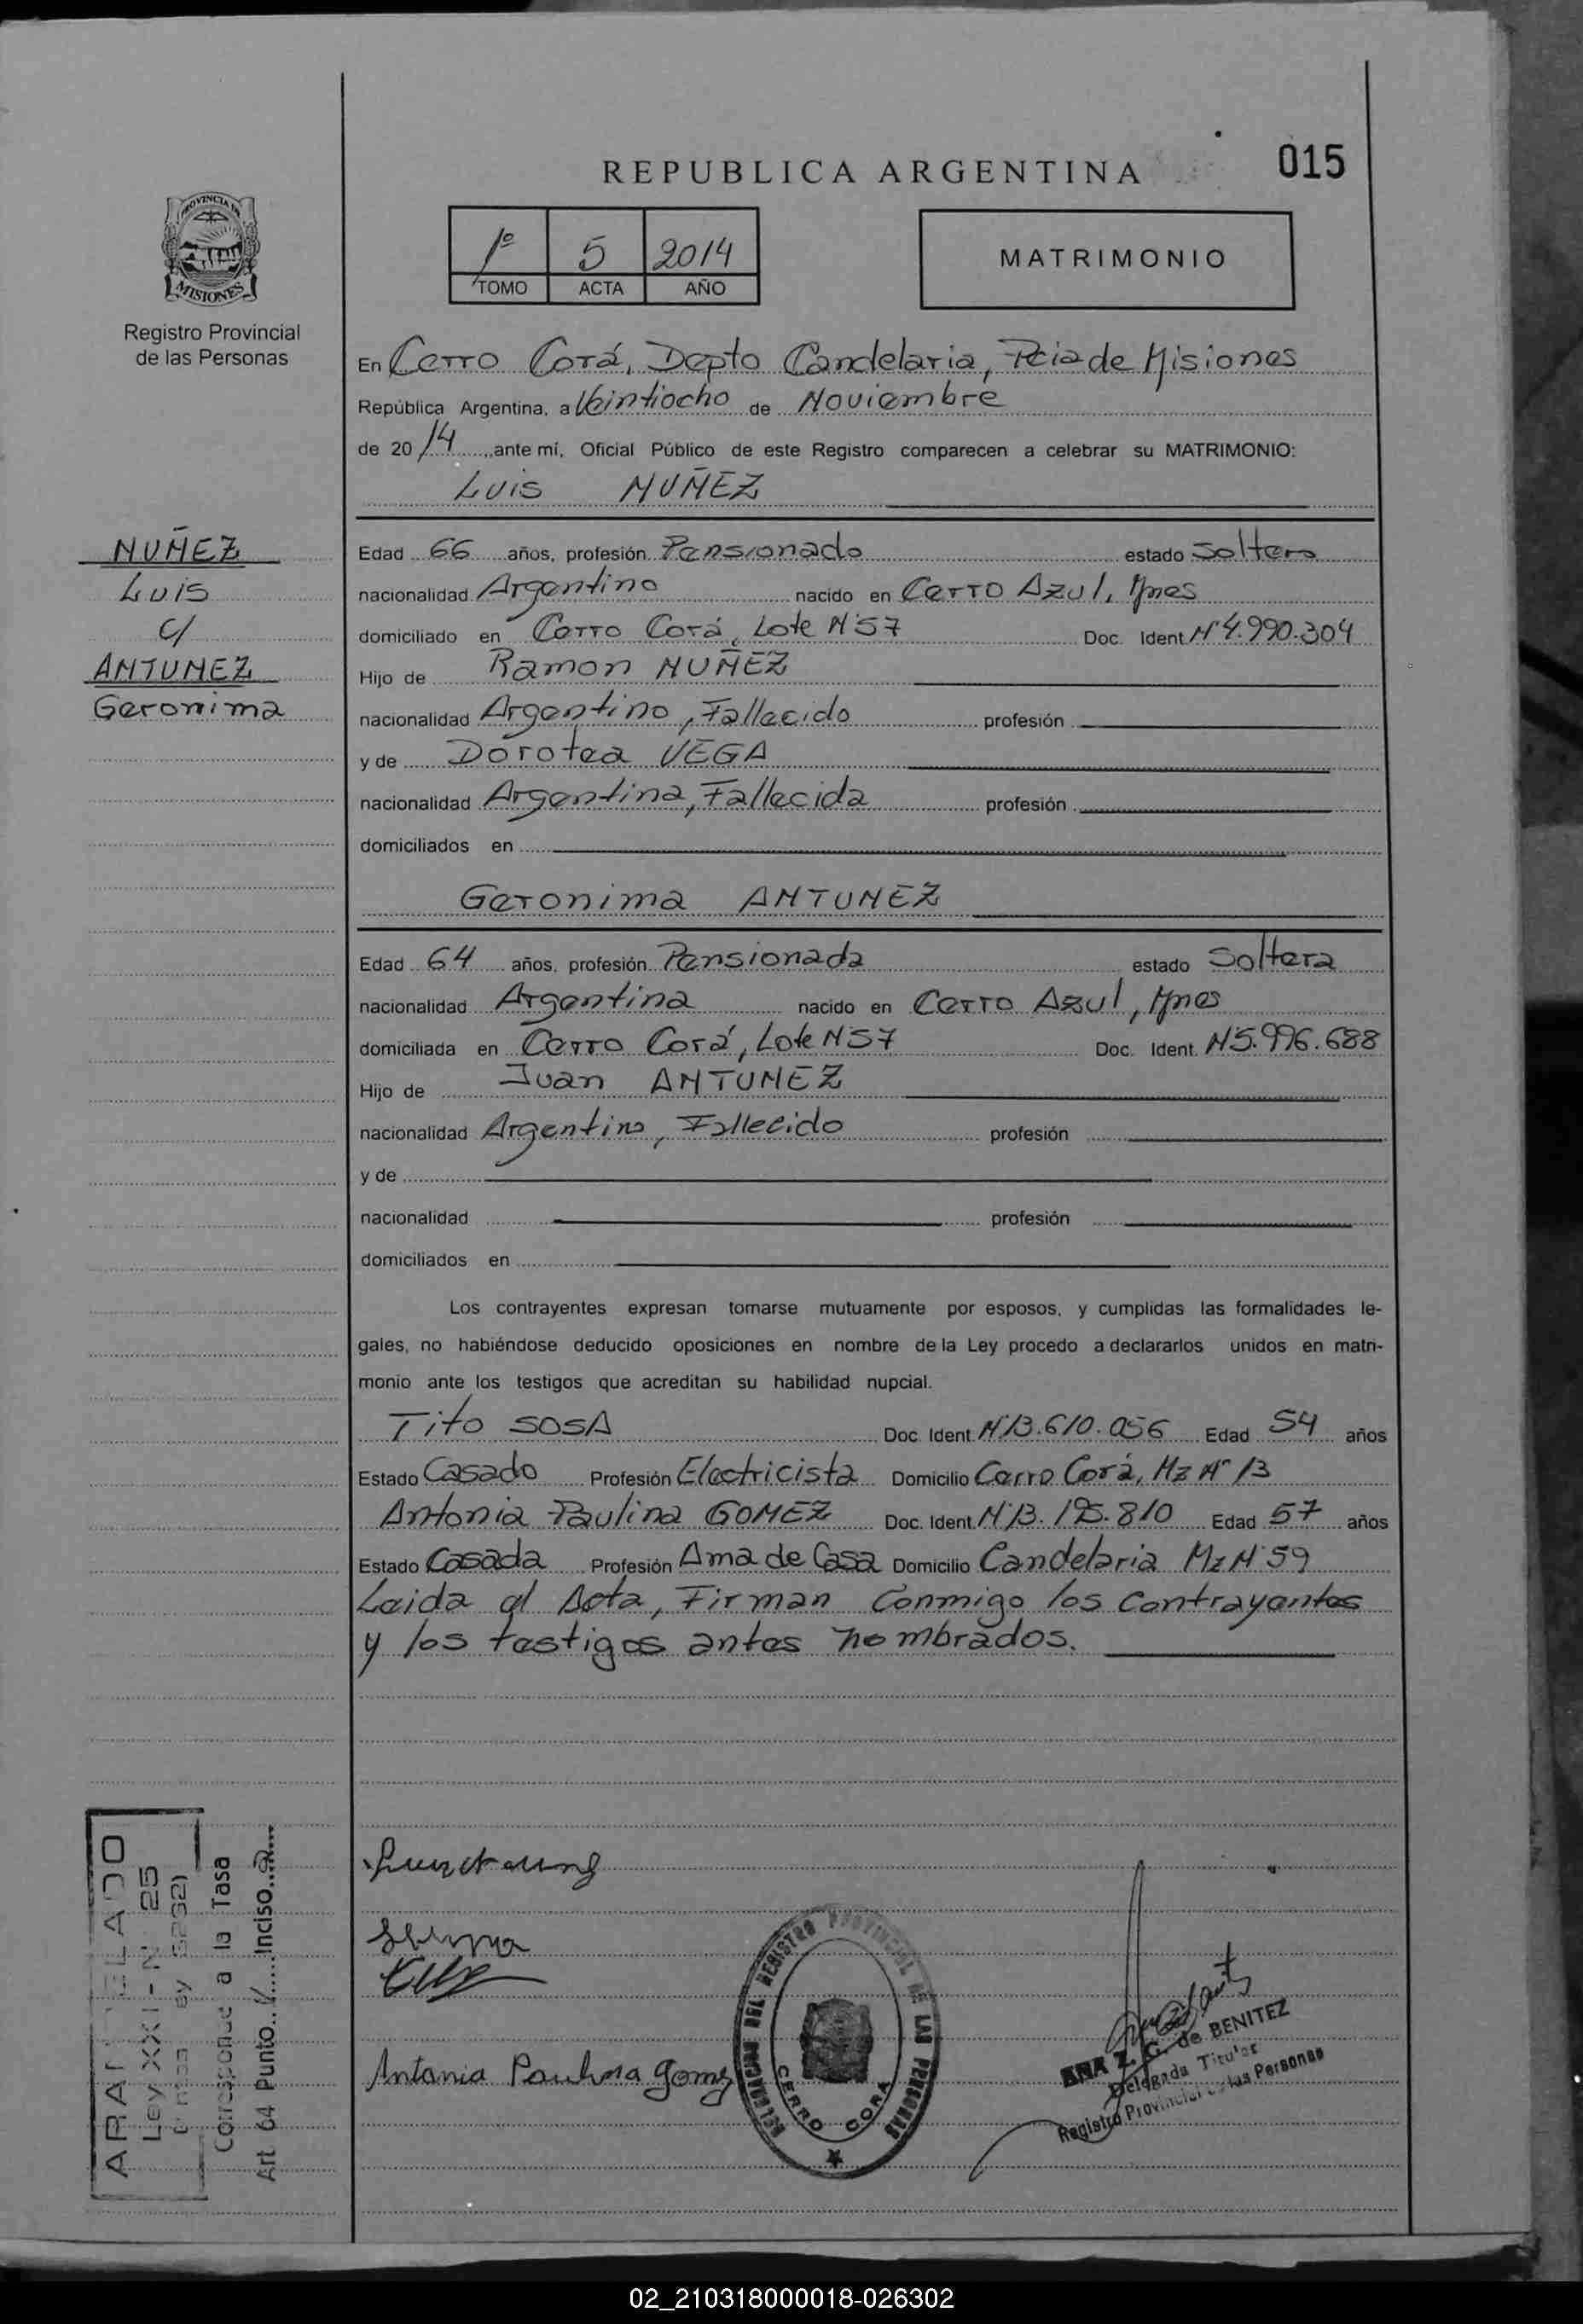 REPUBLICA ARGENTINA
015
PROVINCIA DE
MISIONES
Registro Provincial
de las Personas
1º 5 2014
TOMO ACTA AÑO
MATRIMONIO
En Cerro Corá, Depto Candelaria, Pcia de Misiones
República Argentina, a Veintiocho de Noviembre
de 20 14 ante mí, Oficial Público de este Registro comparecen a celebrar su MATRIMONIO:
Luis NUÑEZ
NUÑEZ
Luis
c/
ANTUNEZ
Geronima
Edad 66 años, profesión Pensionado estado Soltero
nacionalidad Argentino nacido en Cerro Azul, Mnes
domiciliado en Cerro Corá, Lote Nº57 Doc. Ident. Nº4.990.304
Hijo de Ramon NUÑEZ
nacionalidad Argentino, Fallecido profesión
y de Dorotea VEGA
nacionalidad Argentina, Fallecida profesión
domiciliados en
Geronima ANTUNEZ
Edad 64 años, profesión Pensionada estado Soltera
nacionalidad Argentina nacido en Cerro Azul, Mnes
domiciliada en Cerro Corá, Lote N57 Doc. Ident. N5.996.688
Hijo de Juan ANTUNEZ
nacionalidad Argentino, Fallecido profesión
y de
nacionalidad profesión
domiciliados en
Los contrayentes expresan tomarse mutuamente por esposos, y cumplidas las formalidades le-
gales, no habiéndose deducido oposiciones en nombre de la Ley procedo a declararlos unidos en matri-
monio ante los testigos que acreditan su habilidad nupcial.
Tito SOSA Doc. Ident. Nº13.610.056 Edad 54 años
Estado Casado Profesión Electricista Domicilio Cerro Corá, Mz Nº 13
Antonia Paulina GOMEZ Doc. Ident. Nº13.195.810 Edad 57 años
Estado Casada Profesión Ama de Casa Domicilio Candelaria Mz Nº59
Leida el Acta, Firman Conmigo los Contrayentes
y los testigos antes nombrados.
ARANCELADO
Ley XXI - Nº 25
Corresponde a la Tasa
Art 64 Punto Inciso a
Antonia Paulina Gomez
DELEGACION DEL REGISTRO PROVINCIAL DE LAS PERSONAS
CERRO CORA
ANA Z. G. de BENITEZ
Delegada Titular
Registro Provincial de las Personas
02_210318000018-026302